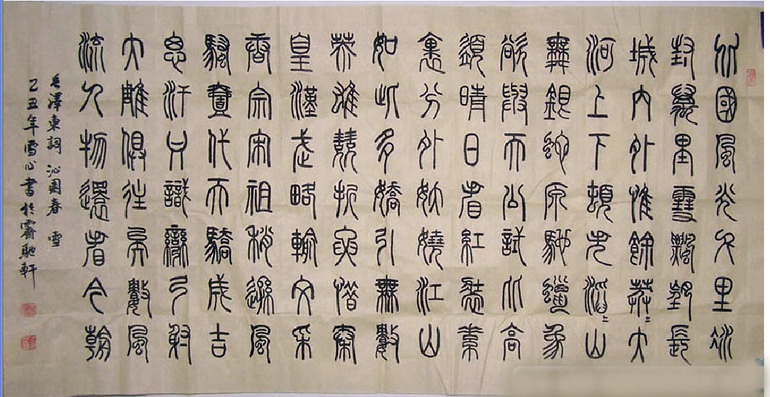 北國風光千里冰
封萬里雪飄望長
城內外惟餘莽〻大
河上下頓失滔〻山
舞銀蛇原馳蠟象
欲與天公試比高
須晴日看紅裝素
裹分外妖嬈江山
如此多嬌引無數
英雄競折腰惜秦
皇漢武略輸文采
唐宗宋祖稍遜風
騷壹代天驕成吉
思汗只識彎弓射
大雕俱往矣數風
流人物還看今朝
毛澤東詞 沁園春 雪
己丑年雪心書於霽馳軒